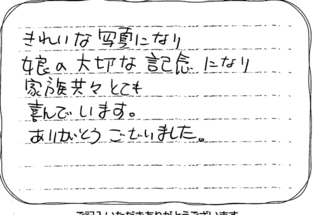 きれいな写真になり
娘の大切な記念になり
家族共々とても
喜んでいます。
ありがとうございました。
ご記入いただきありがとうございます